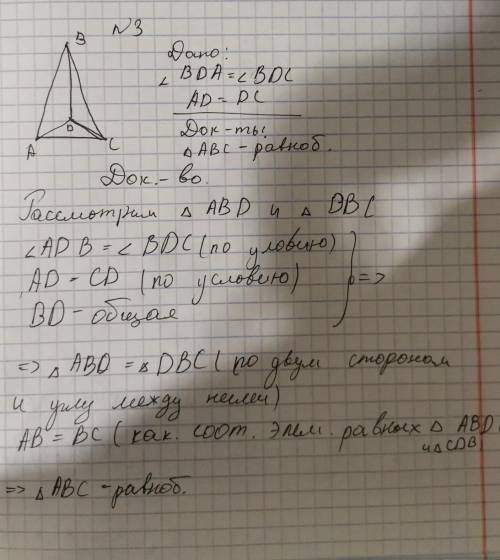 N3
B
D
A
C
Дано:
∠ BDA = ∠ BDC
AD = DC
Док-ть:
△ ABC - равноб.
Док.-во.
Рассмотрим △ ABD и △ DBC
∠ADB = ∠BDC (по уловию)
AD = CD (по условию)
BD - общая
=>
=> △ ABD = △ DBC (по двум сторонам
и углу между ними)
AB = BC (как. соот. элем. равных △ ABD
и △ CDB)
=> △ ABC - равноб.